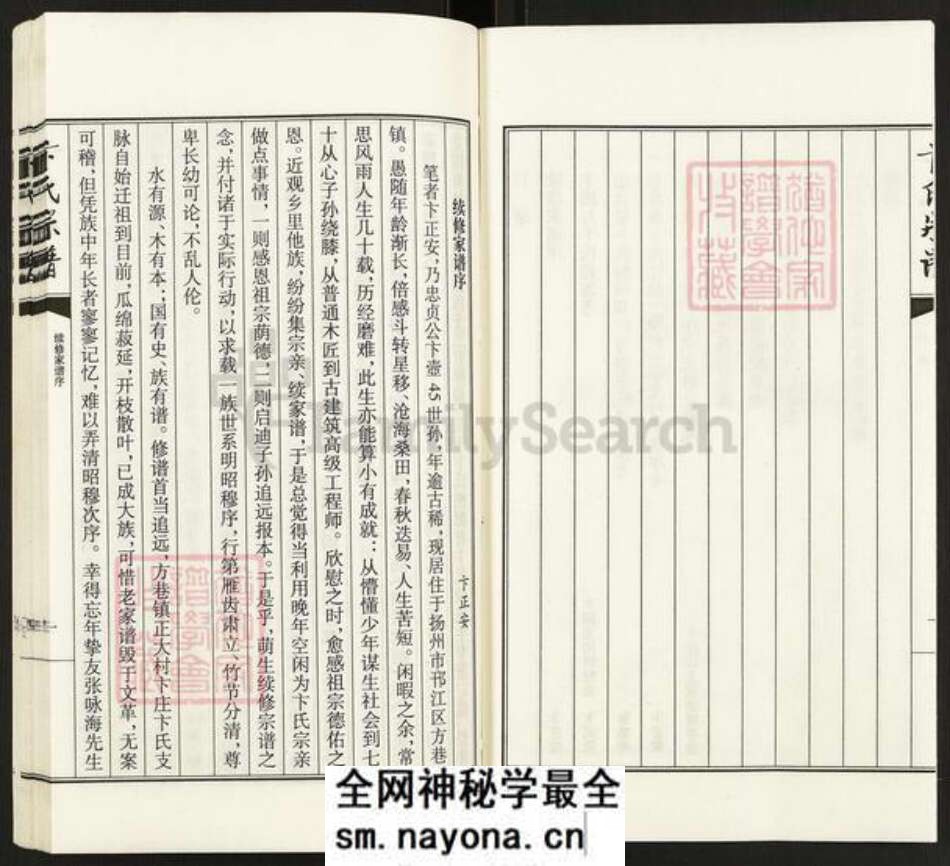 卞氏宗谱
续修家谱序
卞正安
笔者卞正安,乃忠贞公卞壸 45 世孙,年逾古稀,现居住于扬州市邗江区方巷
镇。愚随年龄渐长,倍感斗转星移、沧海桑田,春秋迭易、人生苦短。闲暇之余,常
思风雨人生几十载,历经磨难,此生亦能算小有成就:从懵懂少年谋生社会到七
十从心子孙绕膝,从普通木匠到古建筑高级工程师。欣慰之时,愈感祖宗德佑之
恩。近观乡里他族,纷纷集宗亲、续家谱,于是总觉得当利用晚年空闲为卞氏宗亲
做点事情,一则感恩祖宗荫德,二则启迪子孙追远报本。于是乎,萌生续修宗谱之
念,并付诸于实际行动,以求载一族世系明昭穆序,行第雁齿肃立竹节分清,尊
卑长幼可论,不乱人伦。
水有源、木有本;国有史、族有谱。修谱首当追远,方巷镇正大村卞庄卞氏支
脉自始迁祖到目前,瓜绵菽延,开枝散叶,已成大族,可惜老家谱毁于文革,无案
可稽,但凭族中年长者寥寥记忆,难以弄清昭穆次序。幸得忘年挚友张咏海先生
续修家谱序
FamilySearch
全网神秘学最全
sm.nayona.cn